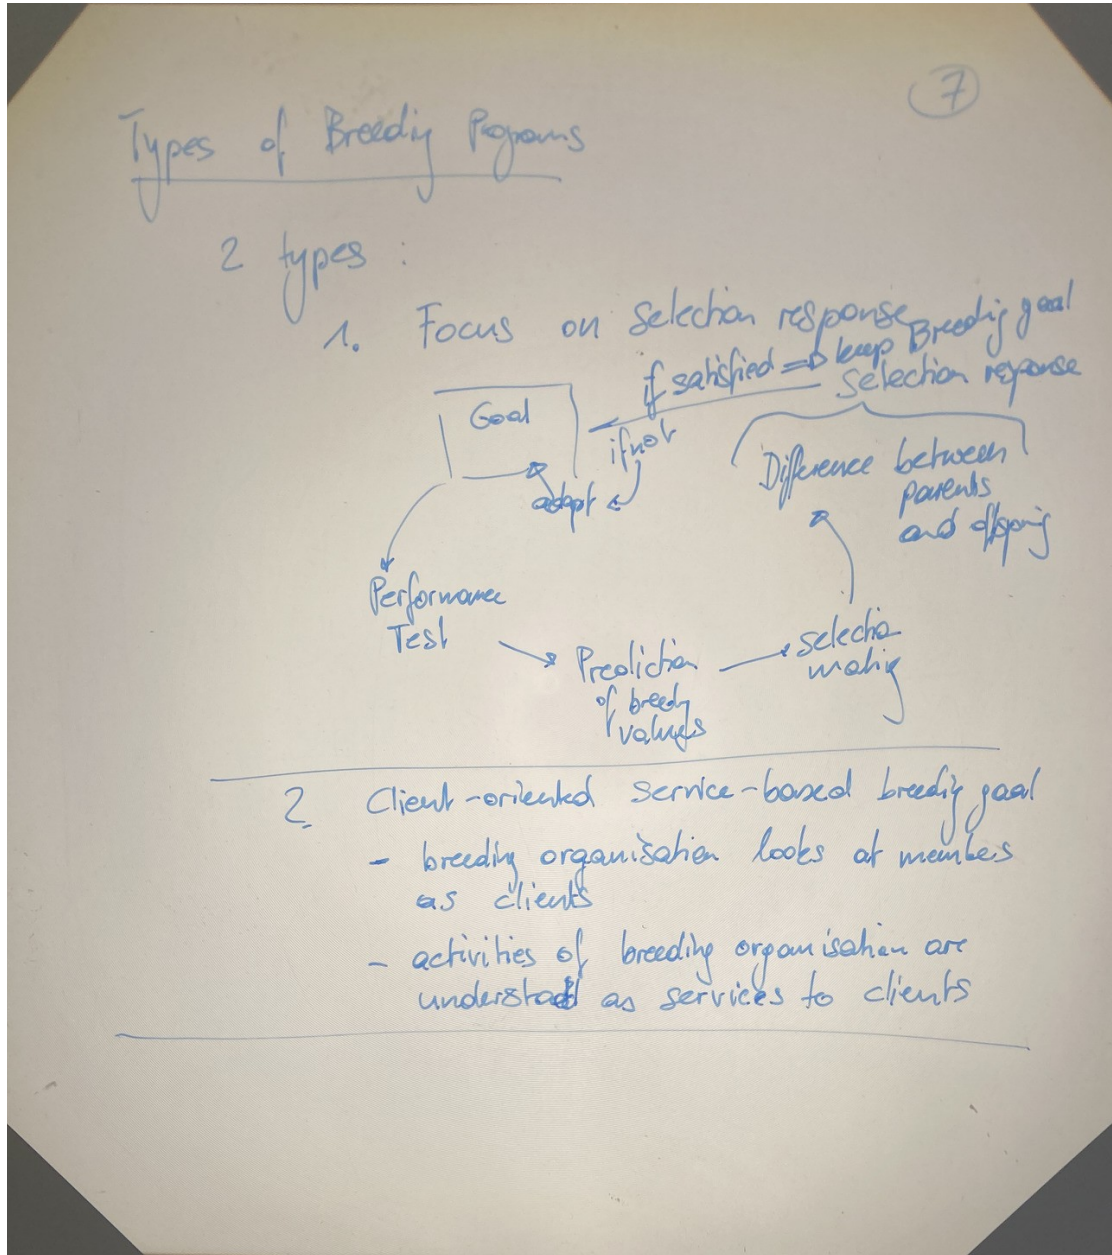 7
Types of Breedig Pograms
2 types :
1. Focus on selection response
if satisfied => keep Breedig goal
selection response
Goal
if not
adapt
Difference between
parents
and offsprig
Performance
Test
Prediction
of breedg
values
selectio
matig
2. Client-oriented service-based breedig goal
- breeding organisation looks at members
as clients
- activities of breeding organisation are
understood as services to clients